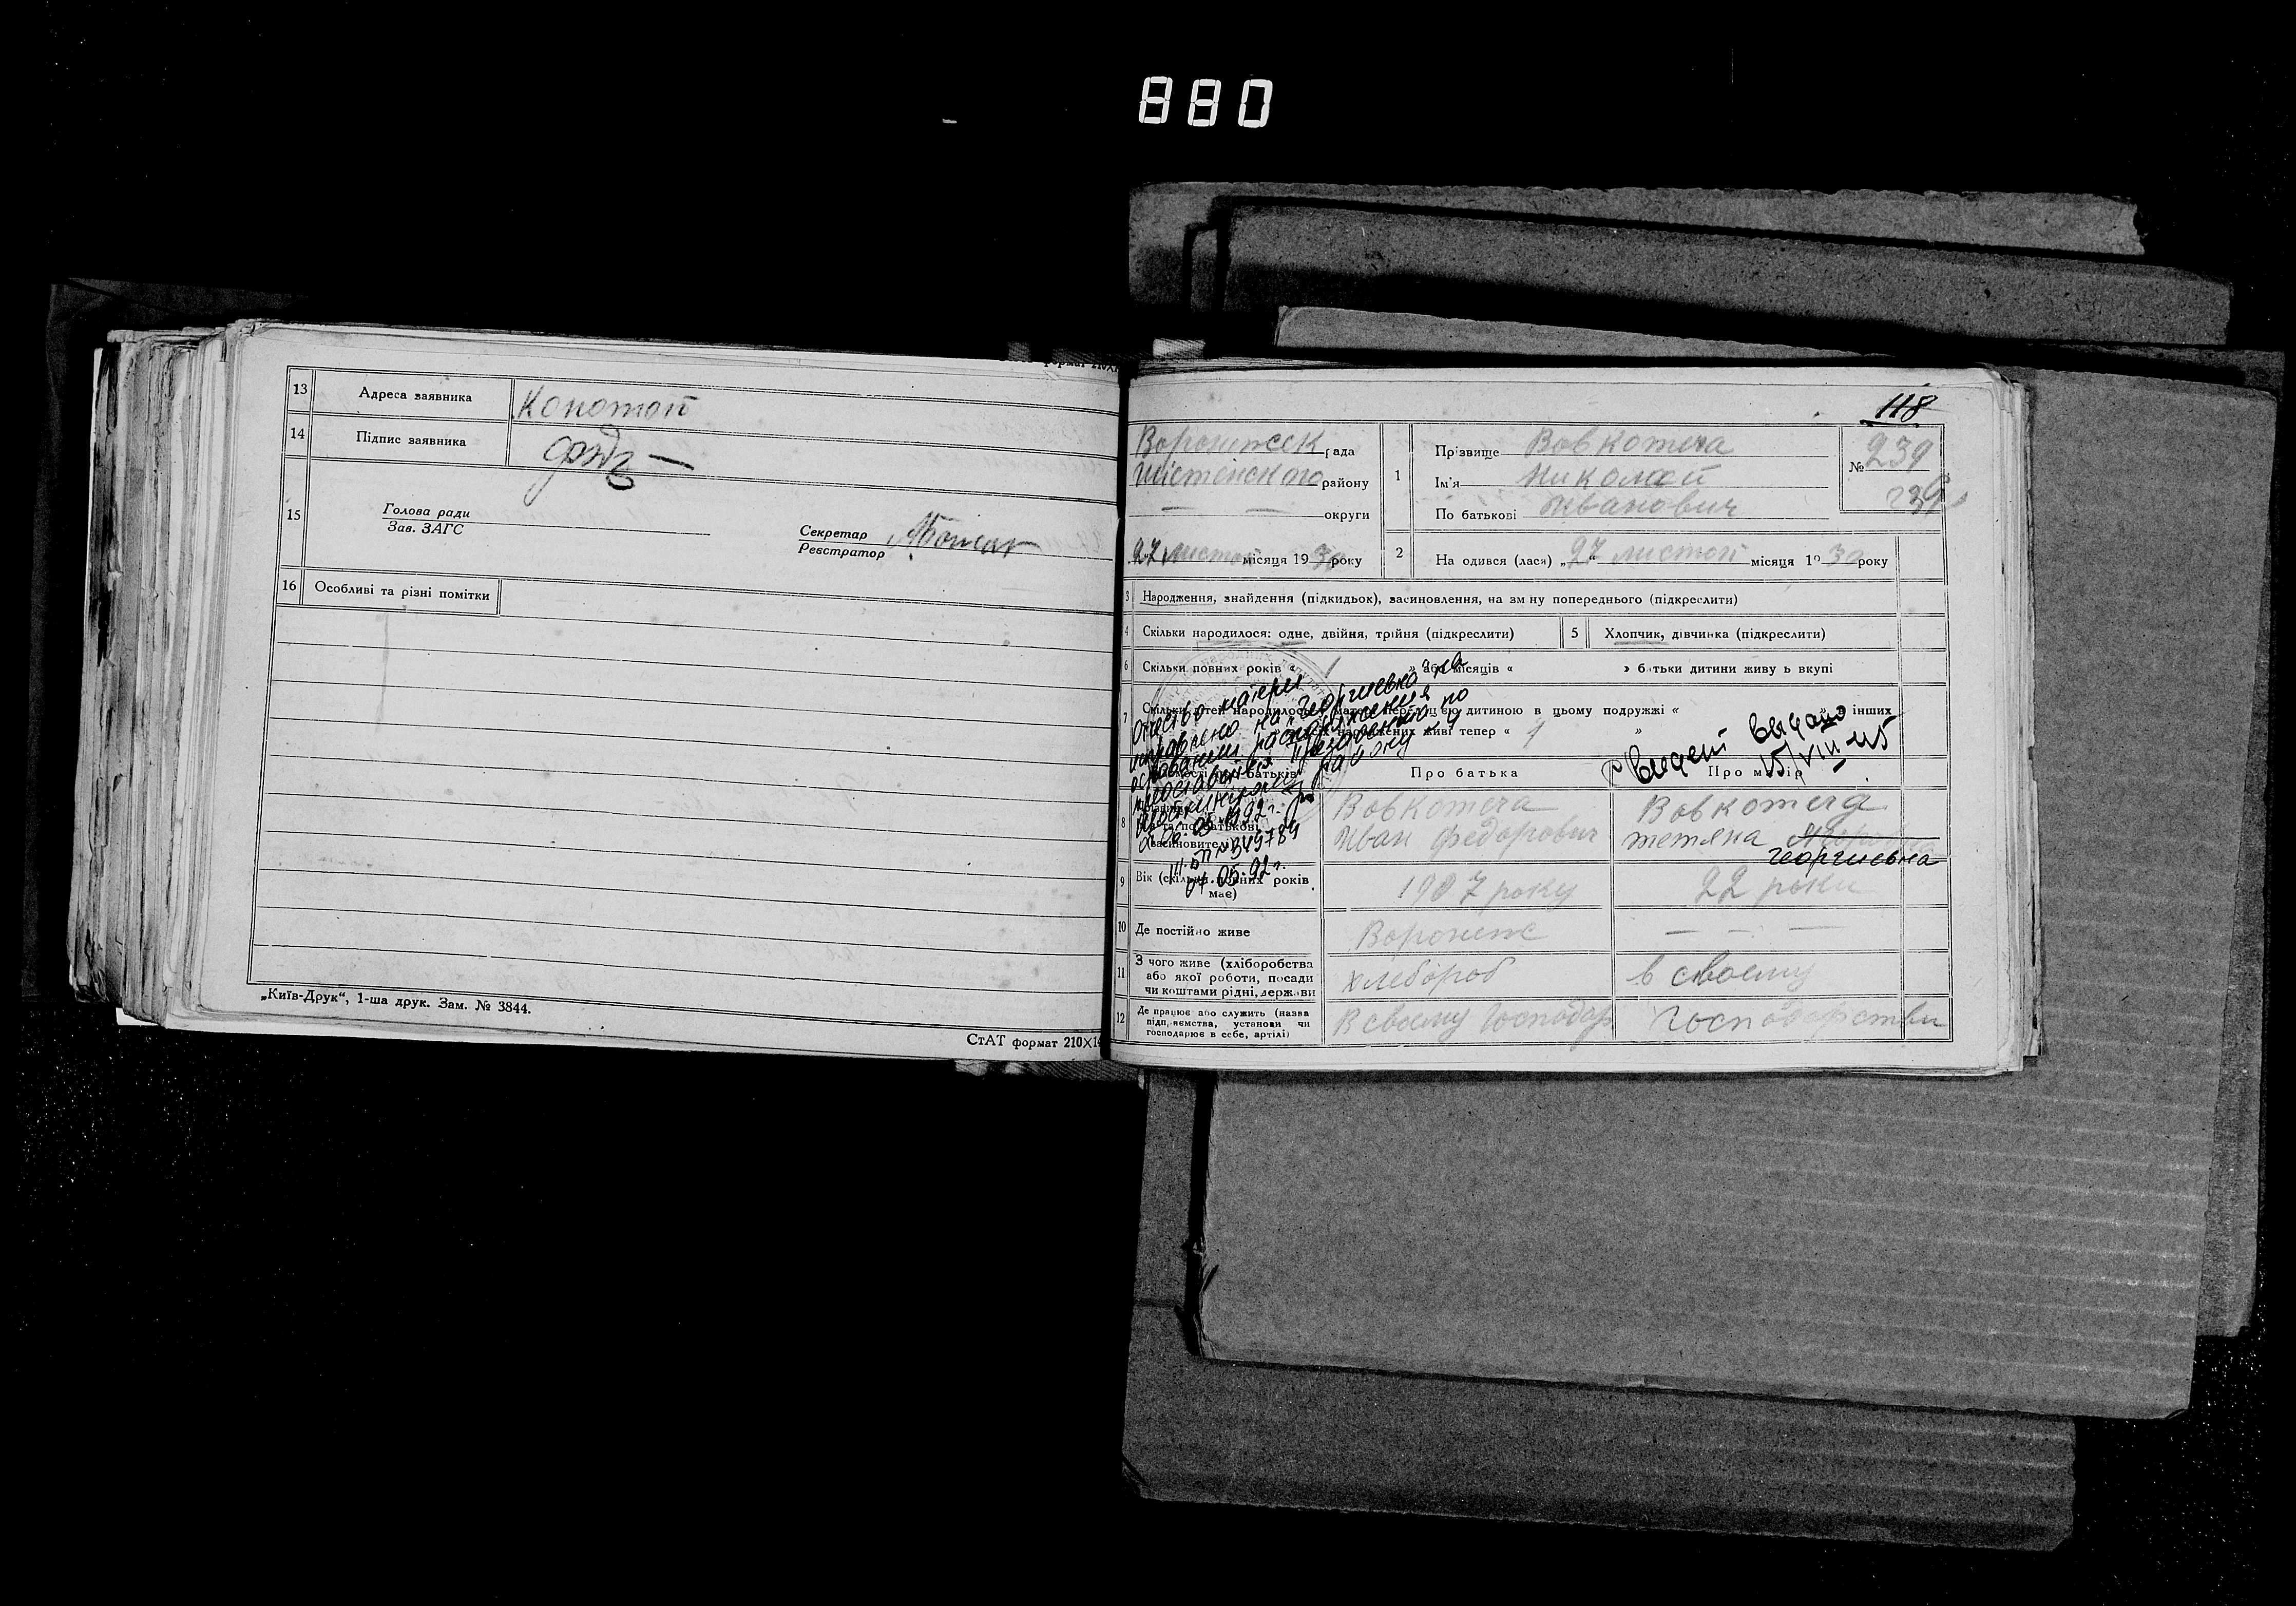 880
13 Адреса заявника Конотоп
14 Підпис заявника
15 Голова ради
Зав. ЗАГС
Секретар
Реєстратор
16 Особливі та різні помітки
„Київ-Друк“, 1-ша друк. Зам. № 3844.
СтАТ формат 210X14
118
Воронижск рада
району
округи
27 листоп місяця 1930 року
1 Прізвище Вовкотеча
Ім'я Николай
По батькові Иванович
№ 239
239
2 На одився (лася) „27 листоп місяця 1930 року
3 Народження, знайдення (підкидьок), засиновлення, на зм ну попереднього (підкреслити)
4 Скільки народилося: одне, двійня, трійня (підкреслити)
5 Хлопчик, дівчинка (підкреслити)
6 Скільки повних років « 1 » або місяців « » батьки дитини живу ь вкупі
7 Скільки дітей народилося у матери перед цією дитиною в цьому подружжі « » в інших
живі тепер « 1 »
Отчество матери
исправлено на "Георгиевна" на
основании
05.1992 г.
№349784
07.05.92 г.
выдано
15/VIII 45
Про батька
Про матір
8 Вовкотеча
Иван Федорович
Вовкотеча
тетяна
Георгиевна
9 Вік (скільки повних років має) 1907 року 22 роки
10 Де постійно живе Воронеж — — —
11 З чого живе (хліборобства
або якої роботи, посади
чи коштами рідні, держави
хлебороб
в своему
12 Де працює або служить (назва
підприємства, установи чи
господарює в себе, артілі)
В своему Господар
Господарстви